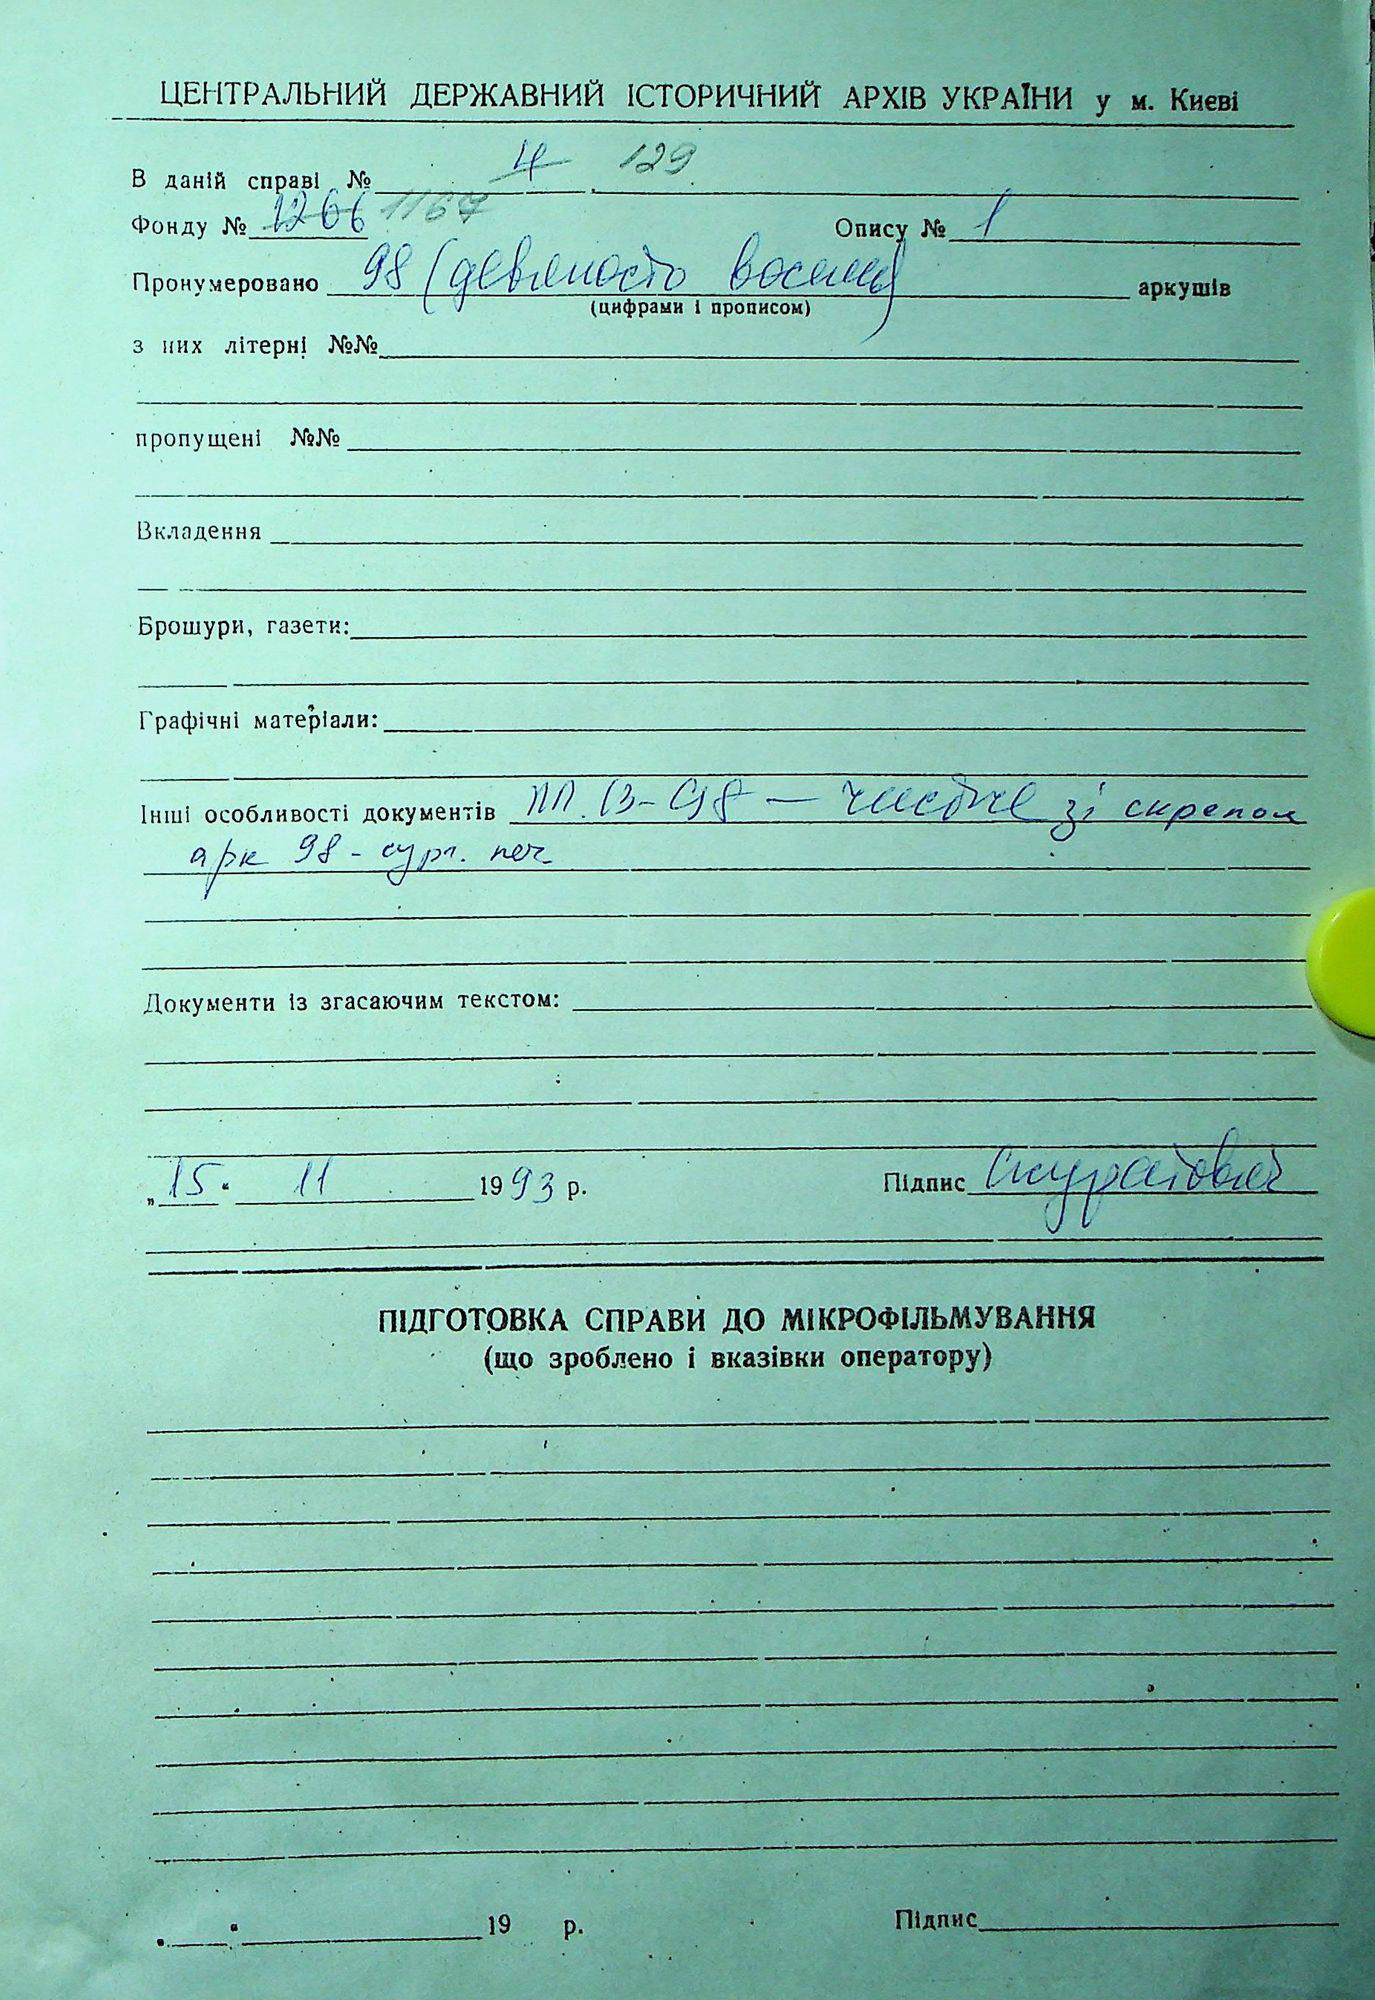 ЦЕНТРАЛЬНИЙ ДЕРЖАВНИЙ ІСТОРИЧНИЙ АРХІВ УКРАЇНИ у м. Києві
В даній справі № 4 129
Фонду № 1266 1167 Опису № 1
Пронумеровано 98 (девяносто восемь) аркушів
(цифрами і прописом)
з них літерні №№
пропущені №№
Вкладення
Брошури, газети:
Графічні матеріали:
Інші особливості документів 13-98 — чистые зі скрепом
арк 98 - сург. печ.
Документи із згасаючим текстом:
„15" 11 1993 р. Підпис
ПІДГОТОВКА СПРАВИ ДО МІКРОФІЛЬМУВАННЯ
(що зроблено і вказівки оператору)
19 р. Підпис